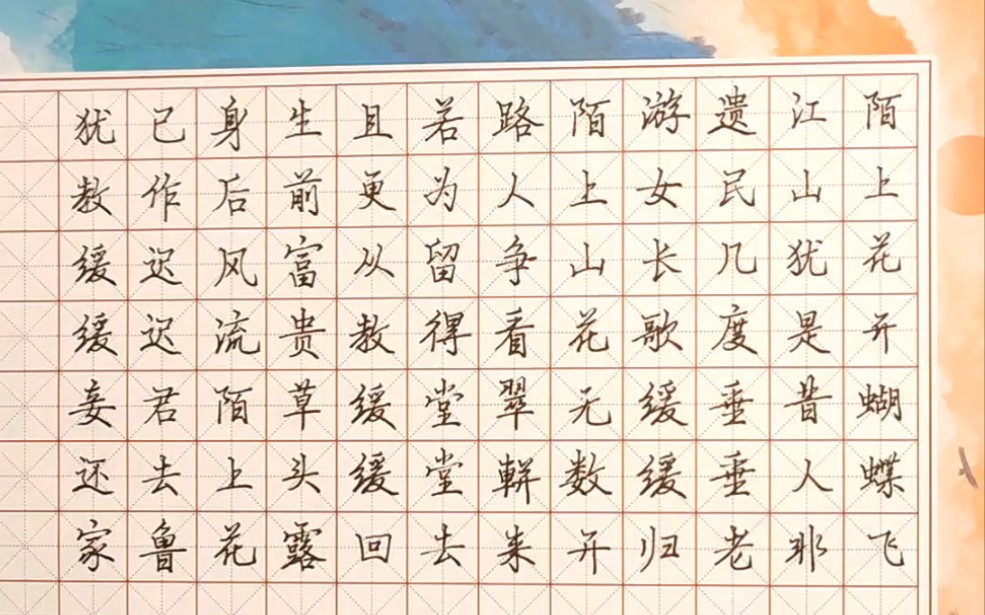 陌上花开蝴蝶飞
江山犹是昔人非
遗民几度垂垂老
游女长歌缓缓归
陌上山花无数开
路人争看翠軿来
若为留得堂堂去
且更从教缓缓回
生前富贵草头露
身后风流陌上花
已作迟迟君去鲁
犹教缓缓妾还家